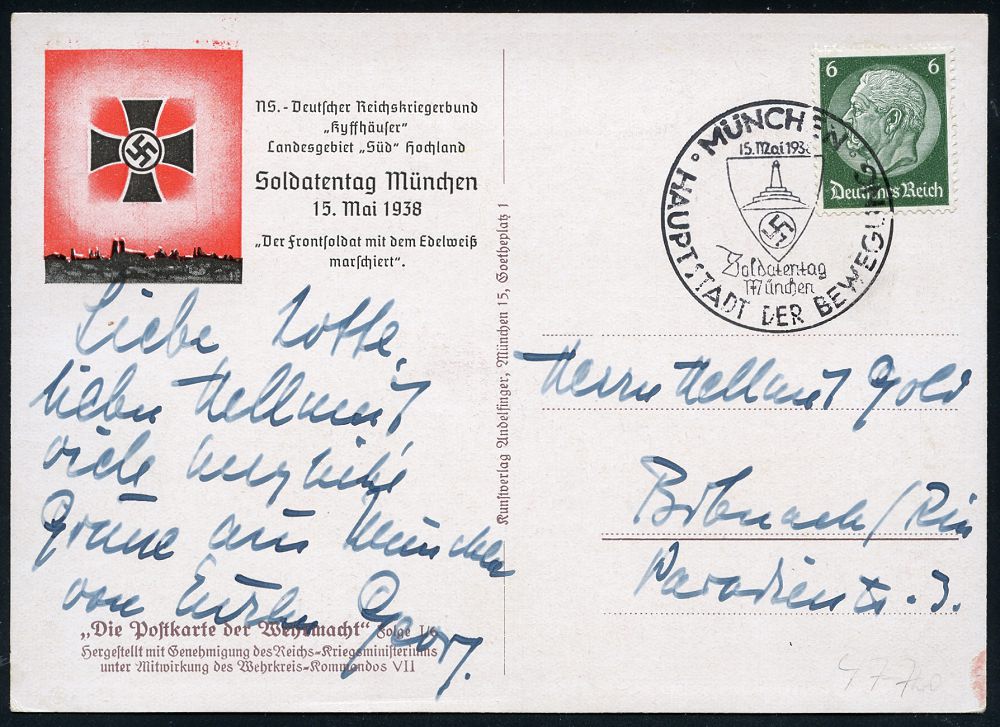 NS.-Deutscher Reichskriegerbund
„Kyffhäuser“
Landesgebiet „Süd“ Hochland
Soldatentag München
15. Mai 1938
„Der Frontsoldat mit dem Edelweiß
marschiert“.
Liebe Lotte,
lieber Hellmut
viele herzliche
Grüsse aus München
von Eurem Georg.
„Die Postkarte der Wehrmacht“ Folge I/6
Hergestellt mit Genehmigung des Reichs-Kriegsministeriums
unter Mitwirkung des Wehrkreis-Kommandos VII
Kunstverlag Andelfinger, München 15, Goetheplatz 1
MÜNCHEN
15. Mai 1938
Soldatentag
München
HAUPTSTADT DER BEWEGUNG
6 6
Deutsches Reich
Herrn Hellmut Gold
Biberach / Riss
3.